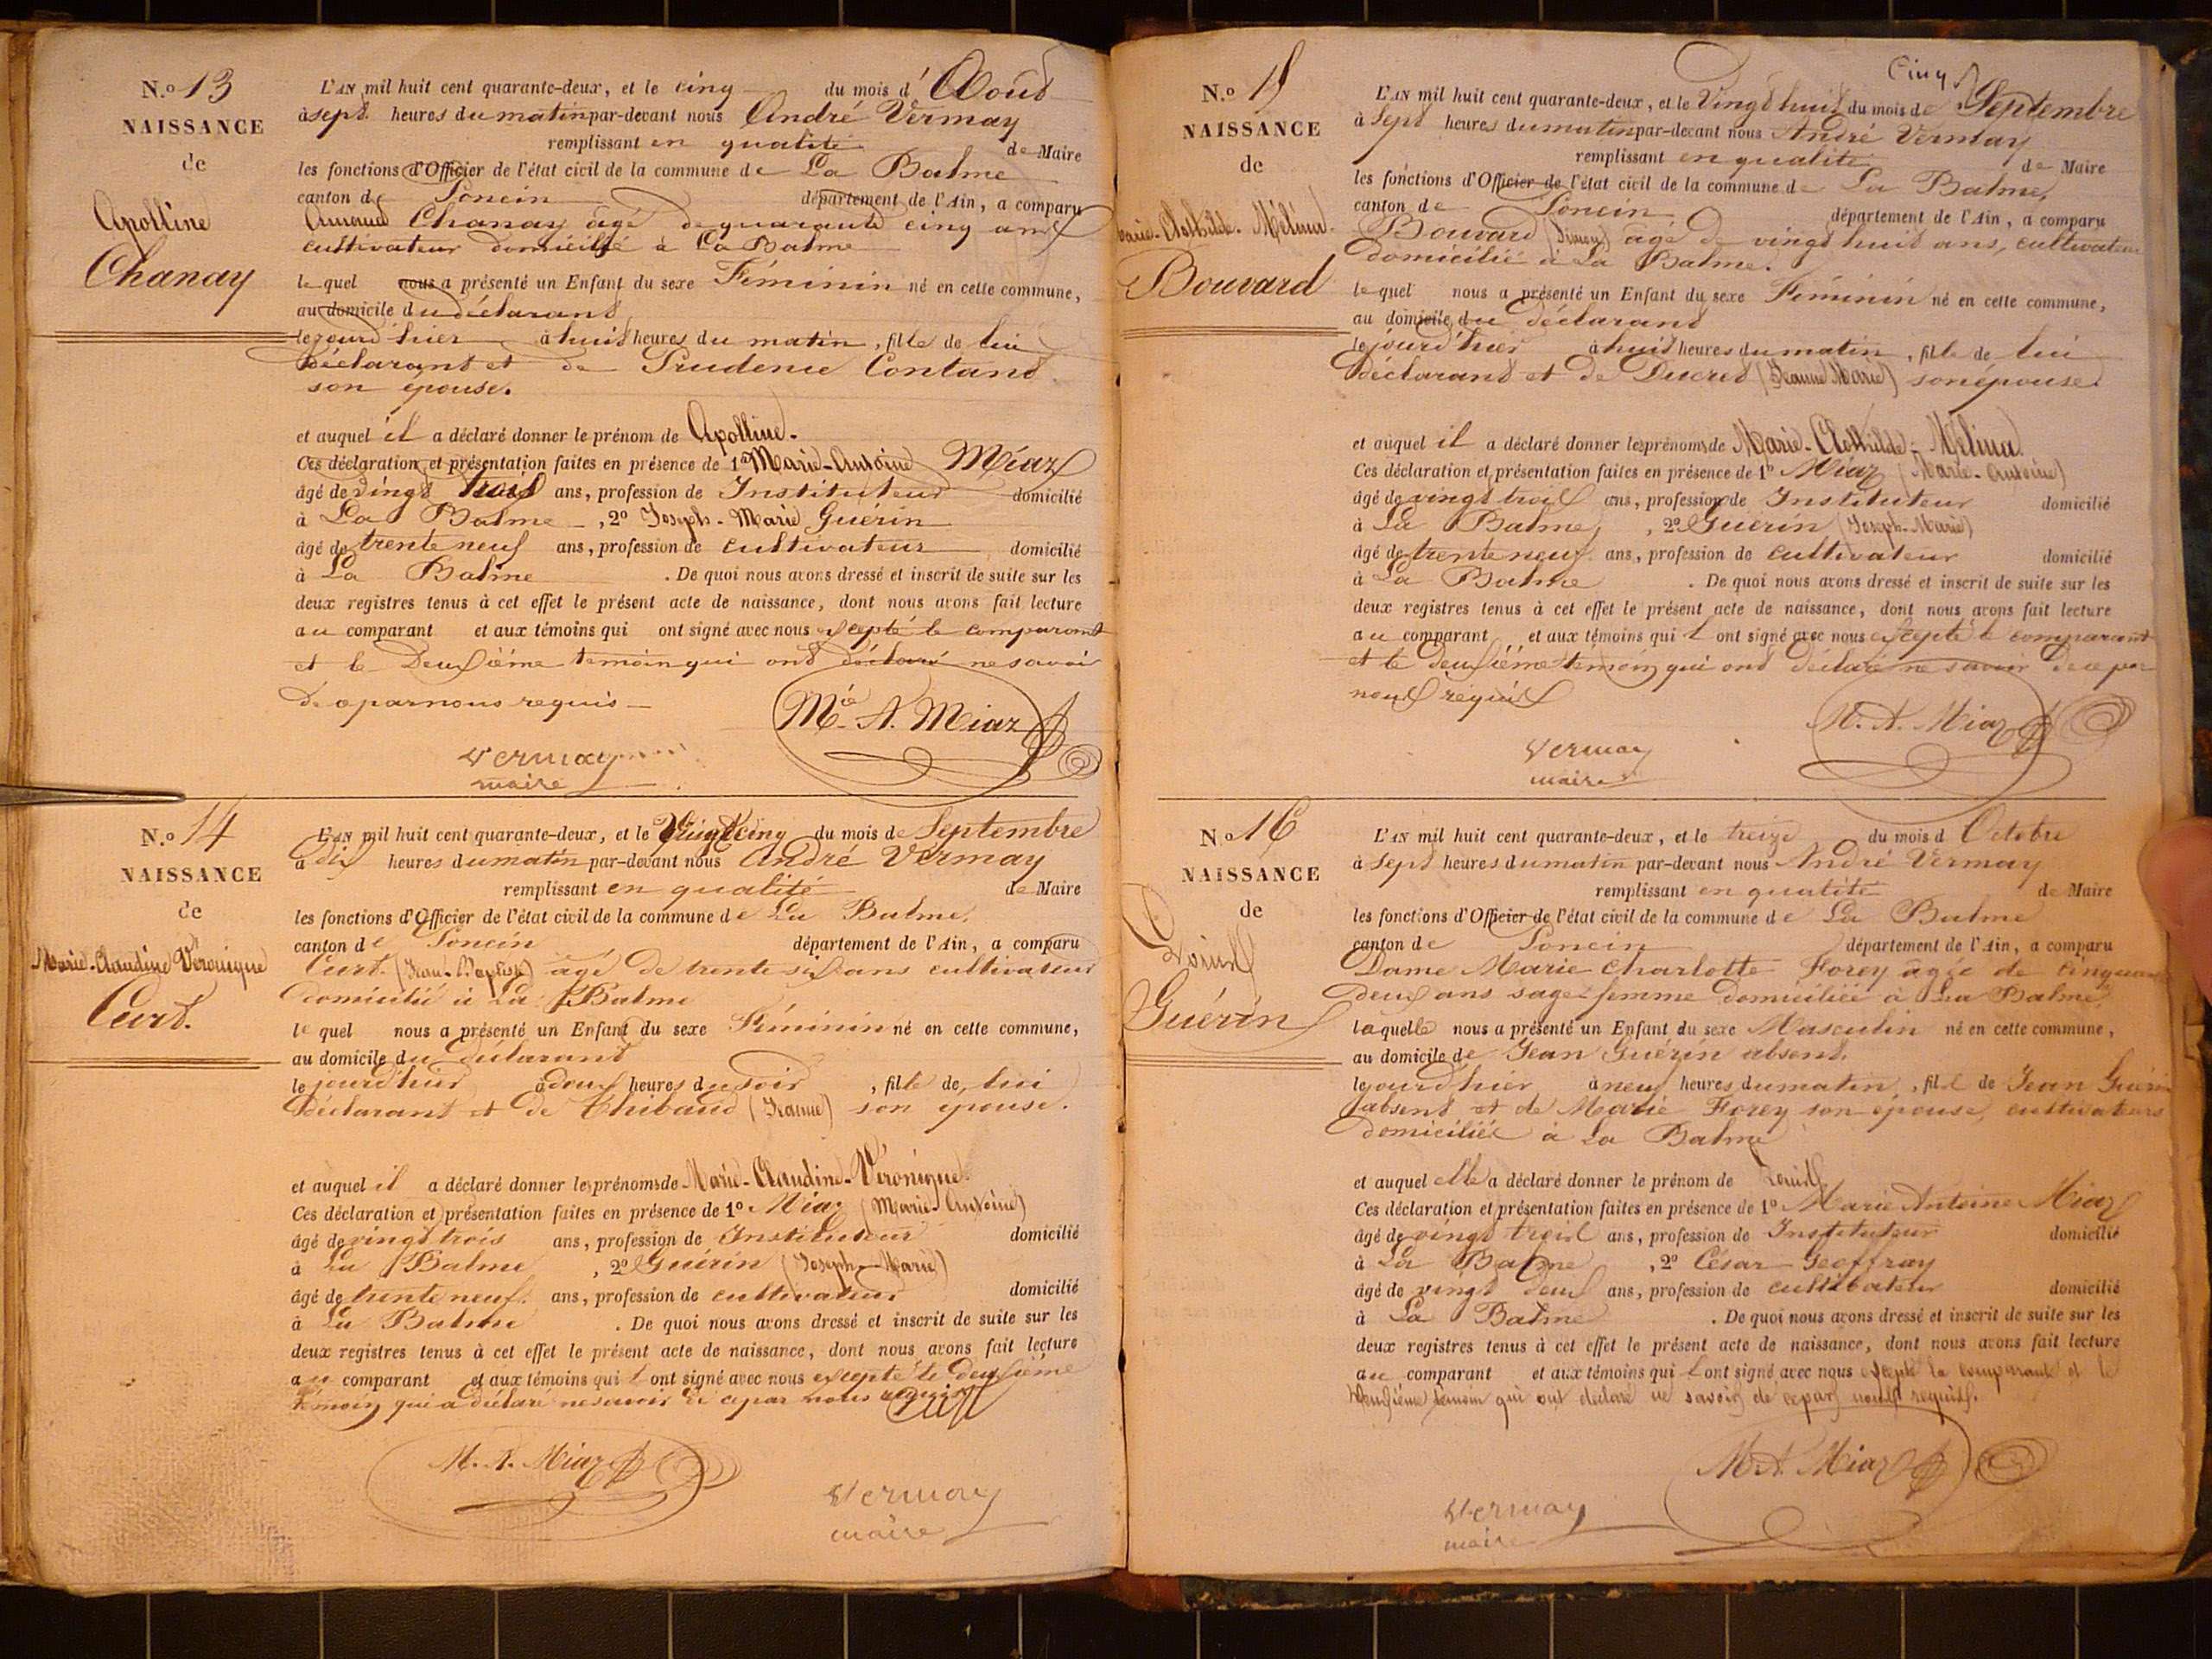 N.o 13
NAISSANCE
de
Apolline
Chanay
L'AN mil huit cent quarante-deux, et le cinq du mois d'Août
à sept heures du matin par-devant nous André Vermay
remplissant en qualité de Maire
les fonctions d'Officier de l'état civil de la commune de La Balme
canton de Poncin département de l'Ain, a comparu
Chanay âgé de quarante cinq ans
cultivateur domicilié à La Balme
le quel nous a présenté un Enfant du sexe Féminin né en cette commune,
au domicile du déclarant
le jourd'hier à huit heures du matin, fille de lui
déclarant et de Prudence Contand
son épouse.
et auquel il a déclaré donner le prénom de Apolline.
Ces déclaration et présentation faites en présence de 1o Marie-Antoine Miaz
âgé de vingt trois ans, profession de Instituteur domicilié
à La Balme, 2o Joseph-Marie Guérin
âgé de trente neuf ans, profession de cultivateur domicilié
à La Balme. De quoi nous avons dressé et inscrit de suite sur les
deux registres tenus à cet effet le présent acte de naissance, dont nous avons fait lecture
au comparant et aux témoins qui ont signé avec nous excepté le comparant
et le Deuxième temoin qui ont déclaré ne savoir
de ce par nous requis
Mie A. Miaz
Vermay
maire
N.o 14
NAISSANCE
de
Marie-Claudine Véronique
Curt.
L'AN mil huit cent quarante-deux, et le Vingt cinq du mois de Septembre
à dix heures du matin par-devant nous André Vermay
remplissant en qualité de Maire
les fonctions d'Officier de l'état civil de la commune de La Balme,
canton de Poncin département de l'Ain, a comparu
Curt (Jean-Baptiste) âgé de trente six ans cultivateur
domicilié à La Balme
le quel nous a présenté un Enfant du sexe Féminin né en cette commune,
au domicile du déclarant
le jourd'hier à douze heures du soir, fille de lui
déclarant et de Thibaud (Jeanne) son épouse.
et auquel il a déclaré donner les prénoms de Marie-Claudine-Véronique.
Ces déclaration et présentation faites en présence de 1o Miaz (Marie-Antoine)
âgé de vingt trois ans, profession de Instituteur domicilié
à La Balme, 2o Guérin (Joseph-Marie)
âgé de trente neuf ans, profession de cultivateur domicilié
à La Balme. De quoi nous avons dressé et inscrit de suite sur les
deux registres tenus à cet effet le présent acte de naissance, dont nous avons fait lecture
au comparant et aux témoins qui ont signé avec nous excepté le deuxième
témoin qui a déclaré ne savoir de ce par nous requis
Curt
M. A. Miaz
Vermay
maire
N.o 15
NAISSANCE
de
Marie-Clothilde-Mélina.
Bouvard
L'AN mil huit cent quarante-deux, et le Vingt huit du mois de Septembre
à Sept heures du matin par-devant nous André Vermay
remplissant en qualité de Maire
les fonctions d'Officier de l'état civil de la commune de La Balme,
canton de Poncin département de l'Ain, a comparu
Bouvard âgé de vingt huit ans, cultivateur
domicilié à La Balme.
le quel nous a présenté un Enfant du sexe Féminin né en cette commune,
au domicile du déclarant
le jourd'hier à huit heures du matin, fille de lui
déclarant et de Ducret (Jeanne Marie) son épouse.
et auquel il a déclaré donner les prénoms de Marie-Clothilde-Mélina.
Ces déclaration et présentation faites en présence de 1o Miaz (Marie-Antoine)
âgé de vingt trois ans, profession de Instituteur domicilié
à La Balme, 2o Guérin (Joseph-Marie)
âgé de trente neuf ans, profession de cultivateur domicilié
à La Balme. De quoi nous avons dressé et inscrit de suite sur les
deux registres tenus à cet effet le présent acte de naissance, dont nous avons fait lecture
au comparant et aux témoins qui ont signé avec nous excepté le comparant
et le deuxième témoin qui ont déclaré ne savoir de ce par
nous requis
M. A. Miaz
Vermay
maire
N.o 16
NAISSANCE
de
Louis
Guérin
L'AN mil huit cent quarante-deux, et le treize du mois d Octobre
à sept heures du matin par-devant nous André Vermay
remplissant en qualité de Maire
les fonctions d'Officier de l'état civil de la commune de La Balme
canton de Poncin département de l'Ain, a comparu
Dame Marie Charlotte Forey âgée de cinquante
deux ans sage-femme domiciliée à La Balme,
laquelle nous a présenté un Enfant du sexe Masculin né en cette commune,
au domicile de Jean Guérin absent.
le jourd'hier à neuf heures du matin, fils de Jean Guérin
absent et de Marie Forey son épouse, cultivateurs
domiciliés à La Balme
et auquel elle a déclaré donner le prénom de Louis
Ces déclaration et présentation faites en présence de 1o Marie Antoine Miaz
âgé de vingt trois ans, profession de Instituteur domicilié
à La Balme, 2o César Geoffray
âgé de vingt deux ans, profession de cultivateur domicilié
à La Balme. De quoi nous avons dressé et inscrit de suite sur les
deux registres tenus à cet effet le présent acte de naissance, dont nous avons fait lecture
au comparant et aux témoins qui ont signé avec nous excepté la comparante et le
deuxième témoin qui ont déclaré ne savoir de ce par nous requis.
M. A. Miaz
Vermay
maire